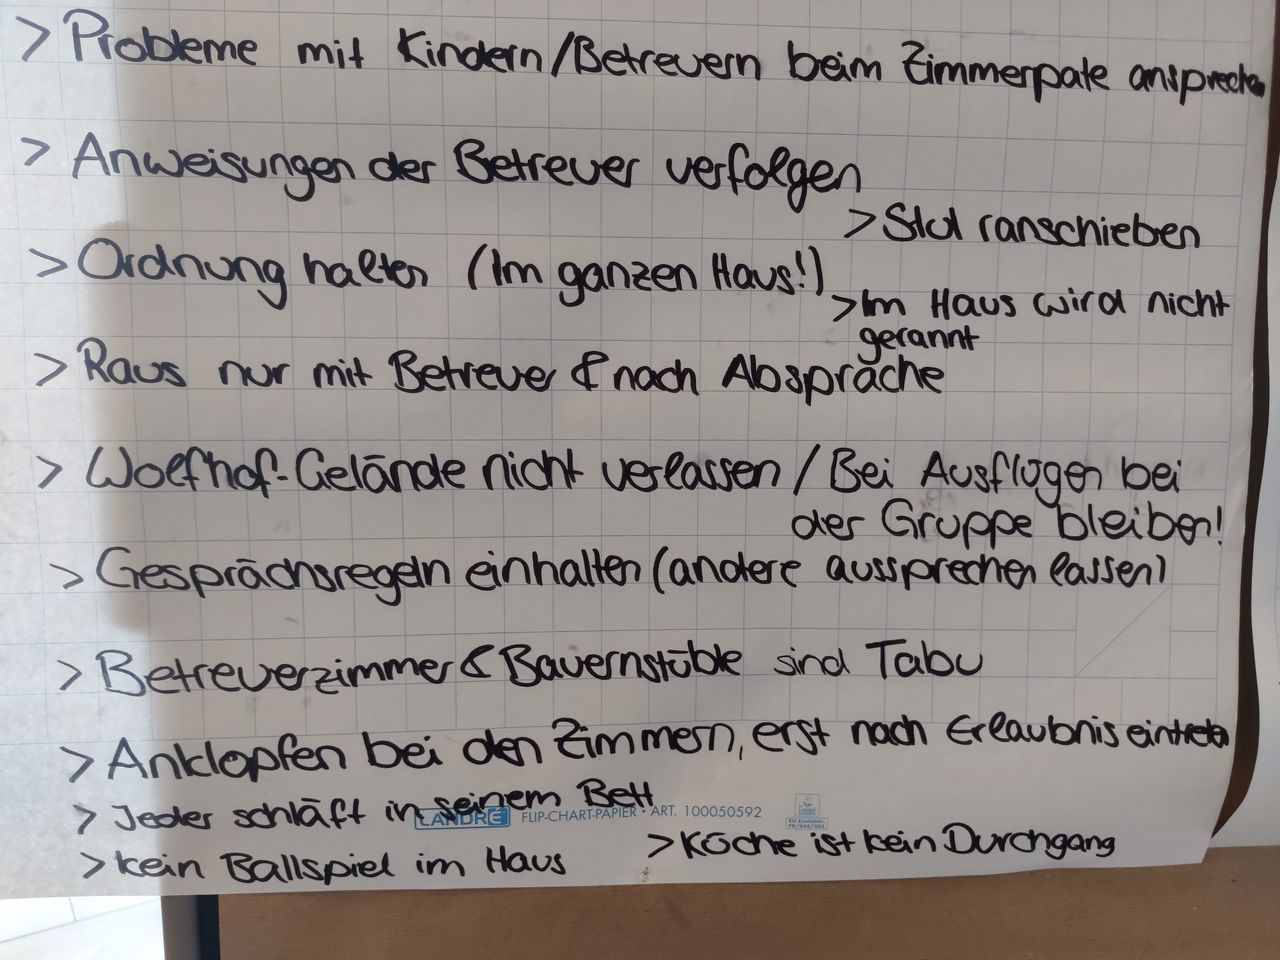 > Probleme mit Kindern/Betreuern beim Zimmerpate ansprechen
> Anweisungen der Betreuer verfolgen
> Stul ranschieben
> Ordnung halten (Im ganzen Haus!)
> Im Haus wird nicht
gerannt
> Raus nur mit Betreuer & nach Absprache
> Wolfhof-Gelände nicht verlassen / Bei Ausflügen bei
der Gruppe bleiben!
> Gesprächsregeln einhalten (andere aussprechen lassen)
> Betreuerzimmer & Bauernstüble sind Tabu
> Anklopfen bei den Zimmern, erst nach Erlaubnis eintreten
> Jeder schläft in seinem Bett
LANDRÉ FLIP-CHART-PAPIER · ART. 100050592
> Küche ist kein Durchgang
> kein Ballspiel im Haus